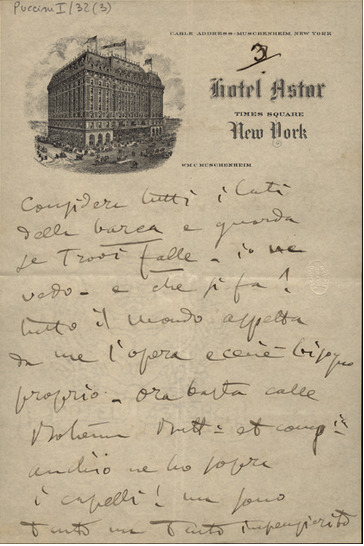 Puccini I/32(3)
CABLE ADDRESS-MUSCHENHEIM, NEW YORK
3
Hotel Astor
TIMES SQUARE
New York
WM C. MUSCHENHEIM
Considera tutti i lati
della barca e guarda
se trovi falle - io ne
vedo - e che si fa?
tutto il mondo aspetta
da me l'opera e ce n'è bisogno
proprio - ora basta colle
Bohème Butt: et comp:i
anch'io ne ho sopra
i capelli! ma sono
tanto ma tanto impensierito